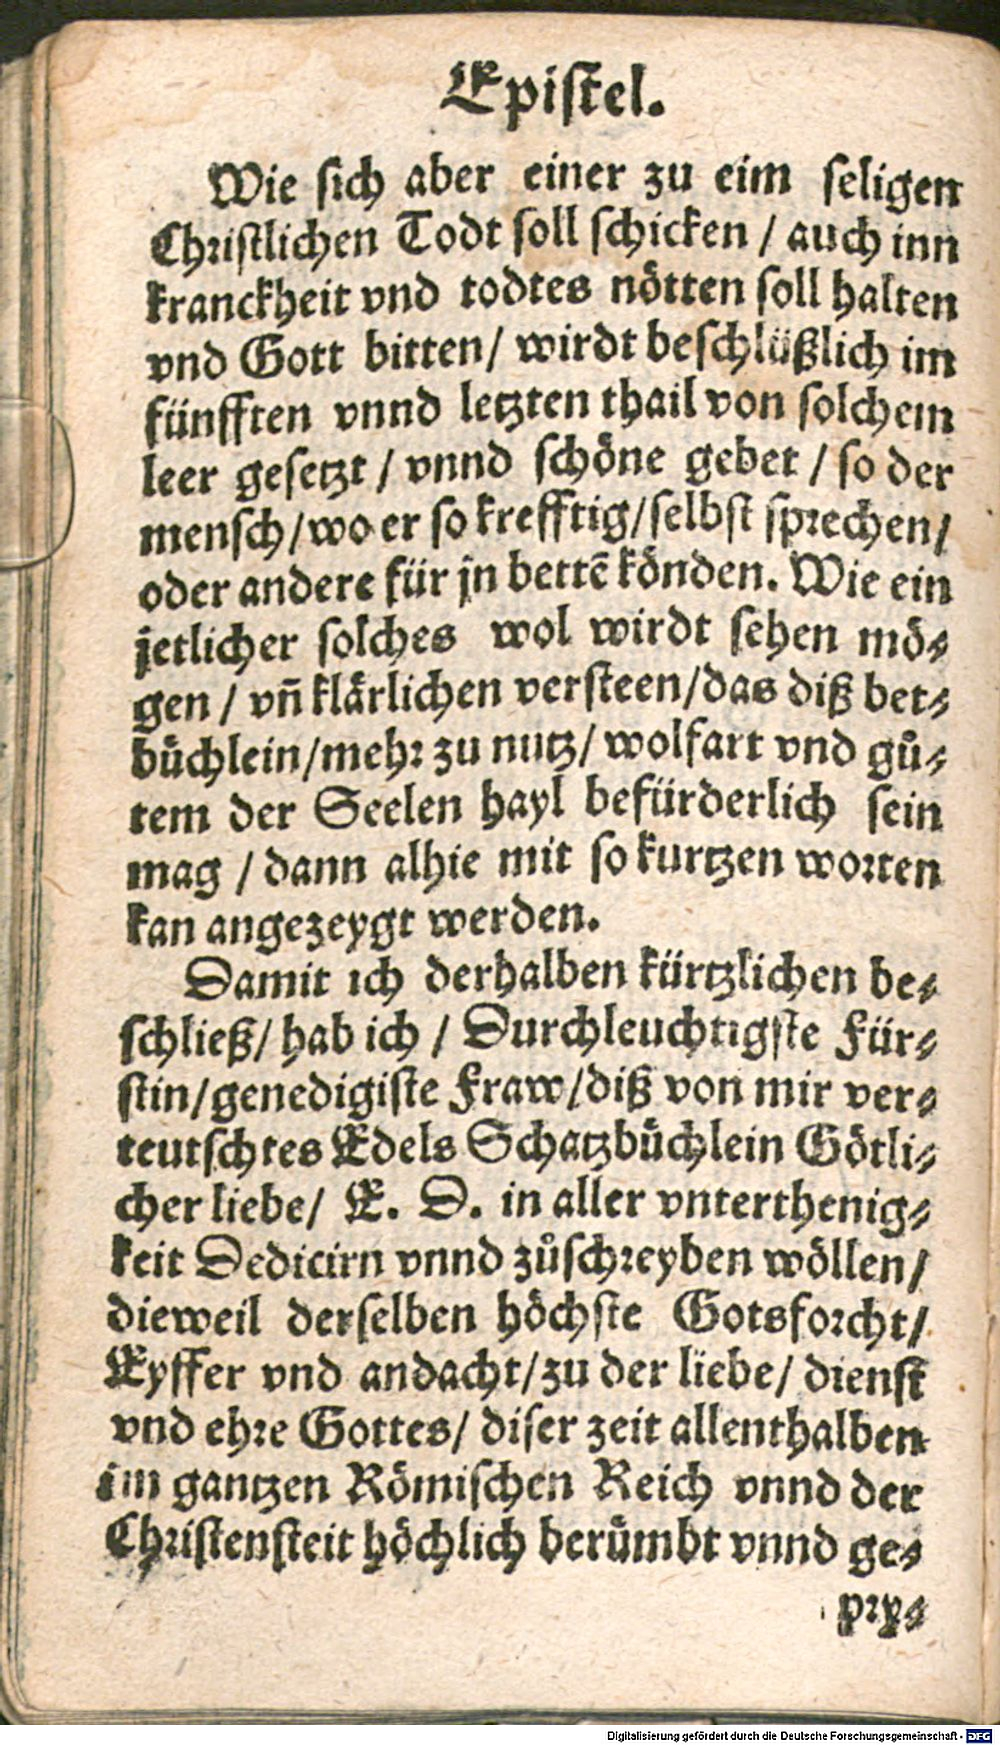 Epiſtel.
Wie ſich aber einer zu eim ſeligen
Chriſtlichen Todt ſoll ſchicken / auch inn
kranckheit vnd todtes nötten ſoll halten
vnd Gott bitten / wirdt beſchlüßlich im
fünfften vnnd letzten thail von ſolchem
leer geſetzt / vnnd ſchöne gebet / ſo der
menſch / wo er ſo krefftig / ſelbſt ſprechen /
oder andere für jn bettē könden. Wie ein
jetlicher ſolches wol wirdt ſehen mö⸗
gen / vñ klärlichen verſteen / das diß bet⸗
büchlein / mehr zu nutz / wolfart vnd gů⸗
tem der Seelen hayl befürderlich ſein
mag / dann alhie mit ſo kurtzen worten
kan angezeygt werden.
Damit ich derhalben kürtzlichen be⸗
ſchließ / hab ich / Durchleuchtigſte Für⸗
ſtin / genedigiſte Fraw / diß von mir ver⸗
teutſchtes Edels Schatzbüchlein Götli⸗
cher liebe / E. D. in aller vnterthenig⸗
keit Dedicirn vnnd zůſchreyben wöllen /
dieweil derſelben höchſte Gotsforcht /
Eyffer vnd andacht / zu der liebe / dienſt
vnd ehre Gottes / diſer zeit allenthalben
im gantzen Römiſchen Reich vnnd der
Chriſtenſteit höchlich berümbt vnnd ge⸗
pry⸗
Digitalisierung gefördert durch die Deutsche Forschungsgemeinschaft - DFG